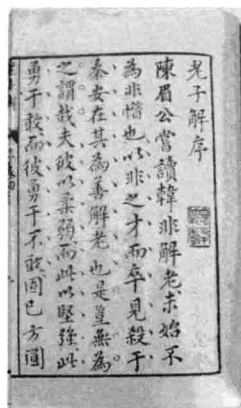 老子解序
陳眉公嘗讀韓非解老未始不
為非惜也以非之才而卒見殺于
秦安在其為善解老也是豈無為
之謂哉夫彼以柔弱而此以堅強此
勇于敢而彼勇于不敢固已方圓